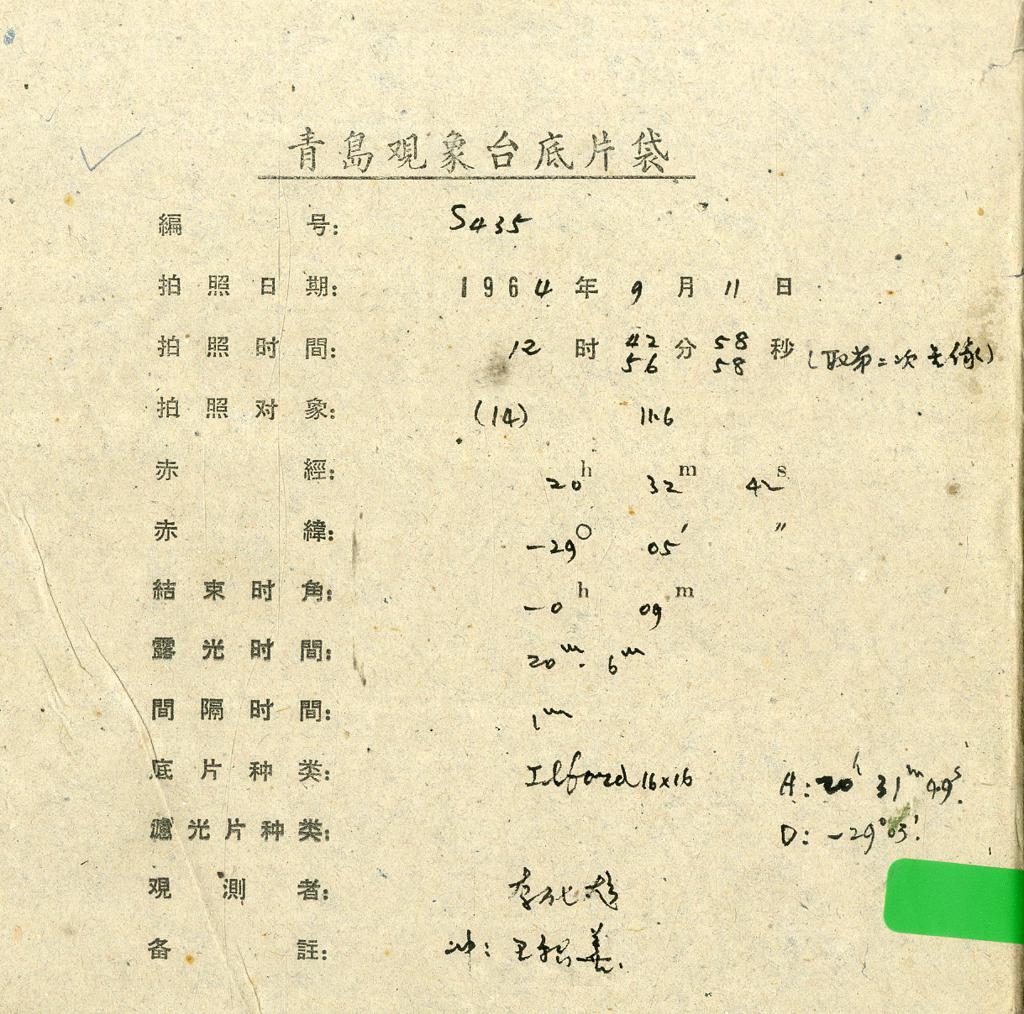 青島观象台底片袋
編号: S435
拍照日期: 1964年9月11日
拍照时間: 12时 42 分 58 秒
56 58 (取第二次光像)
拍照对象: (14) 11.6
赤經: 20h 32m 42s
赤緯: -29° 05′ ″
結束时角: -0h 09m
露光时間: 20m. 6m
間隔时間: 1m
底片种类: Ilford 16x16
A: 20h 31m 49s.
濾光片种类:
D: -29°03′.
观測者: 李
备註: 冲: 王 善.